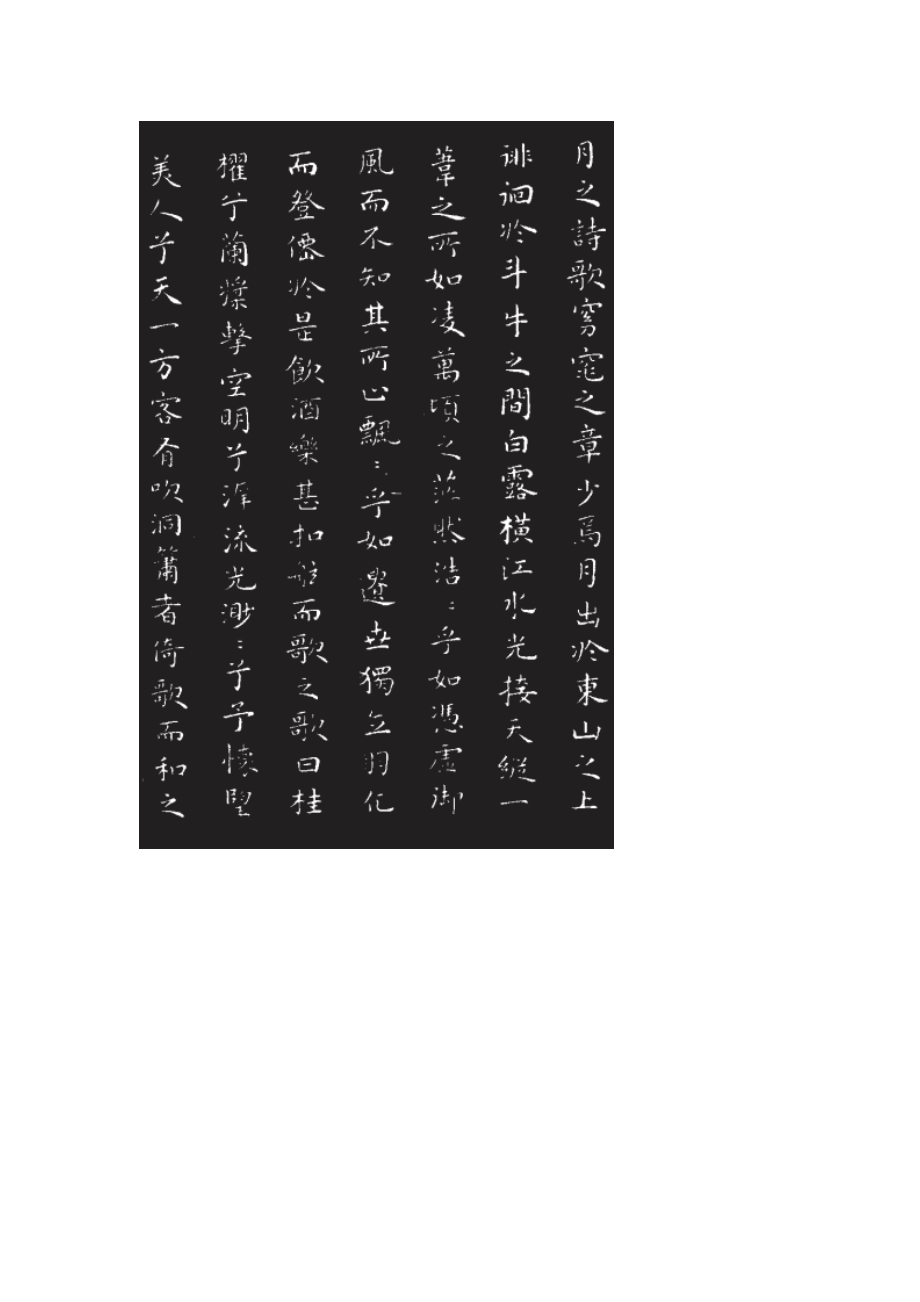 月之詩歌窈窕之章少焉月出於東山之上
徘徊於斗牛之間白露橫江水光接天縱一
葦之所如凌萬頃之茫然浩〻乎如憑虛御
風而不知其所止飄〻乎如遺世獨立羽化
而登僊於是飲酒樂甚扣舷而歌之歌曰桂
櫂兮蘭槳擊空明兮泝流光渺〻兮予懷望
美人兮天一方客有吹洞簫者倚歌而和之